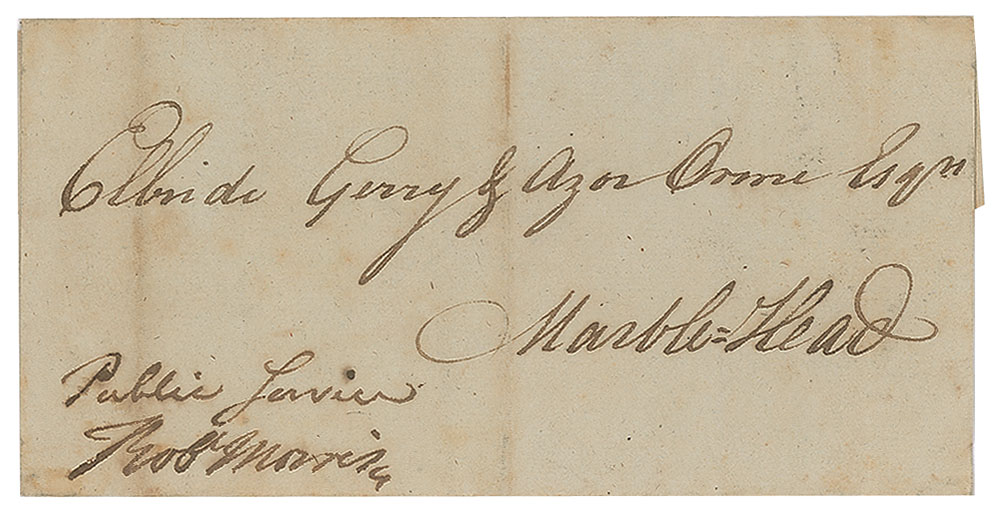 Elbride Gerry & Azor Orne Esqrs
Marble=Head
Public Service
Robt Morris